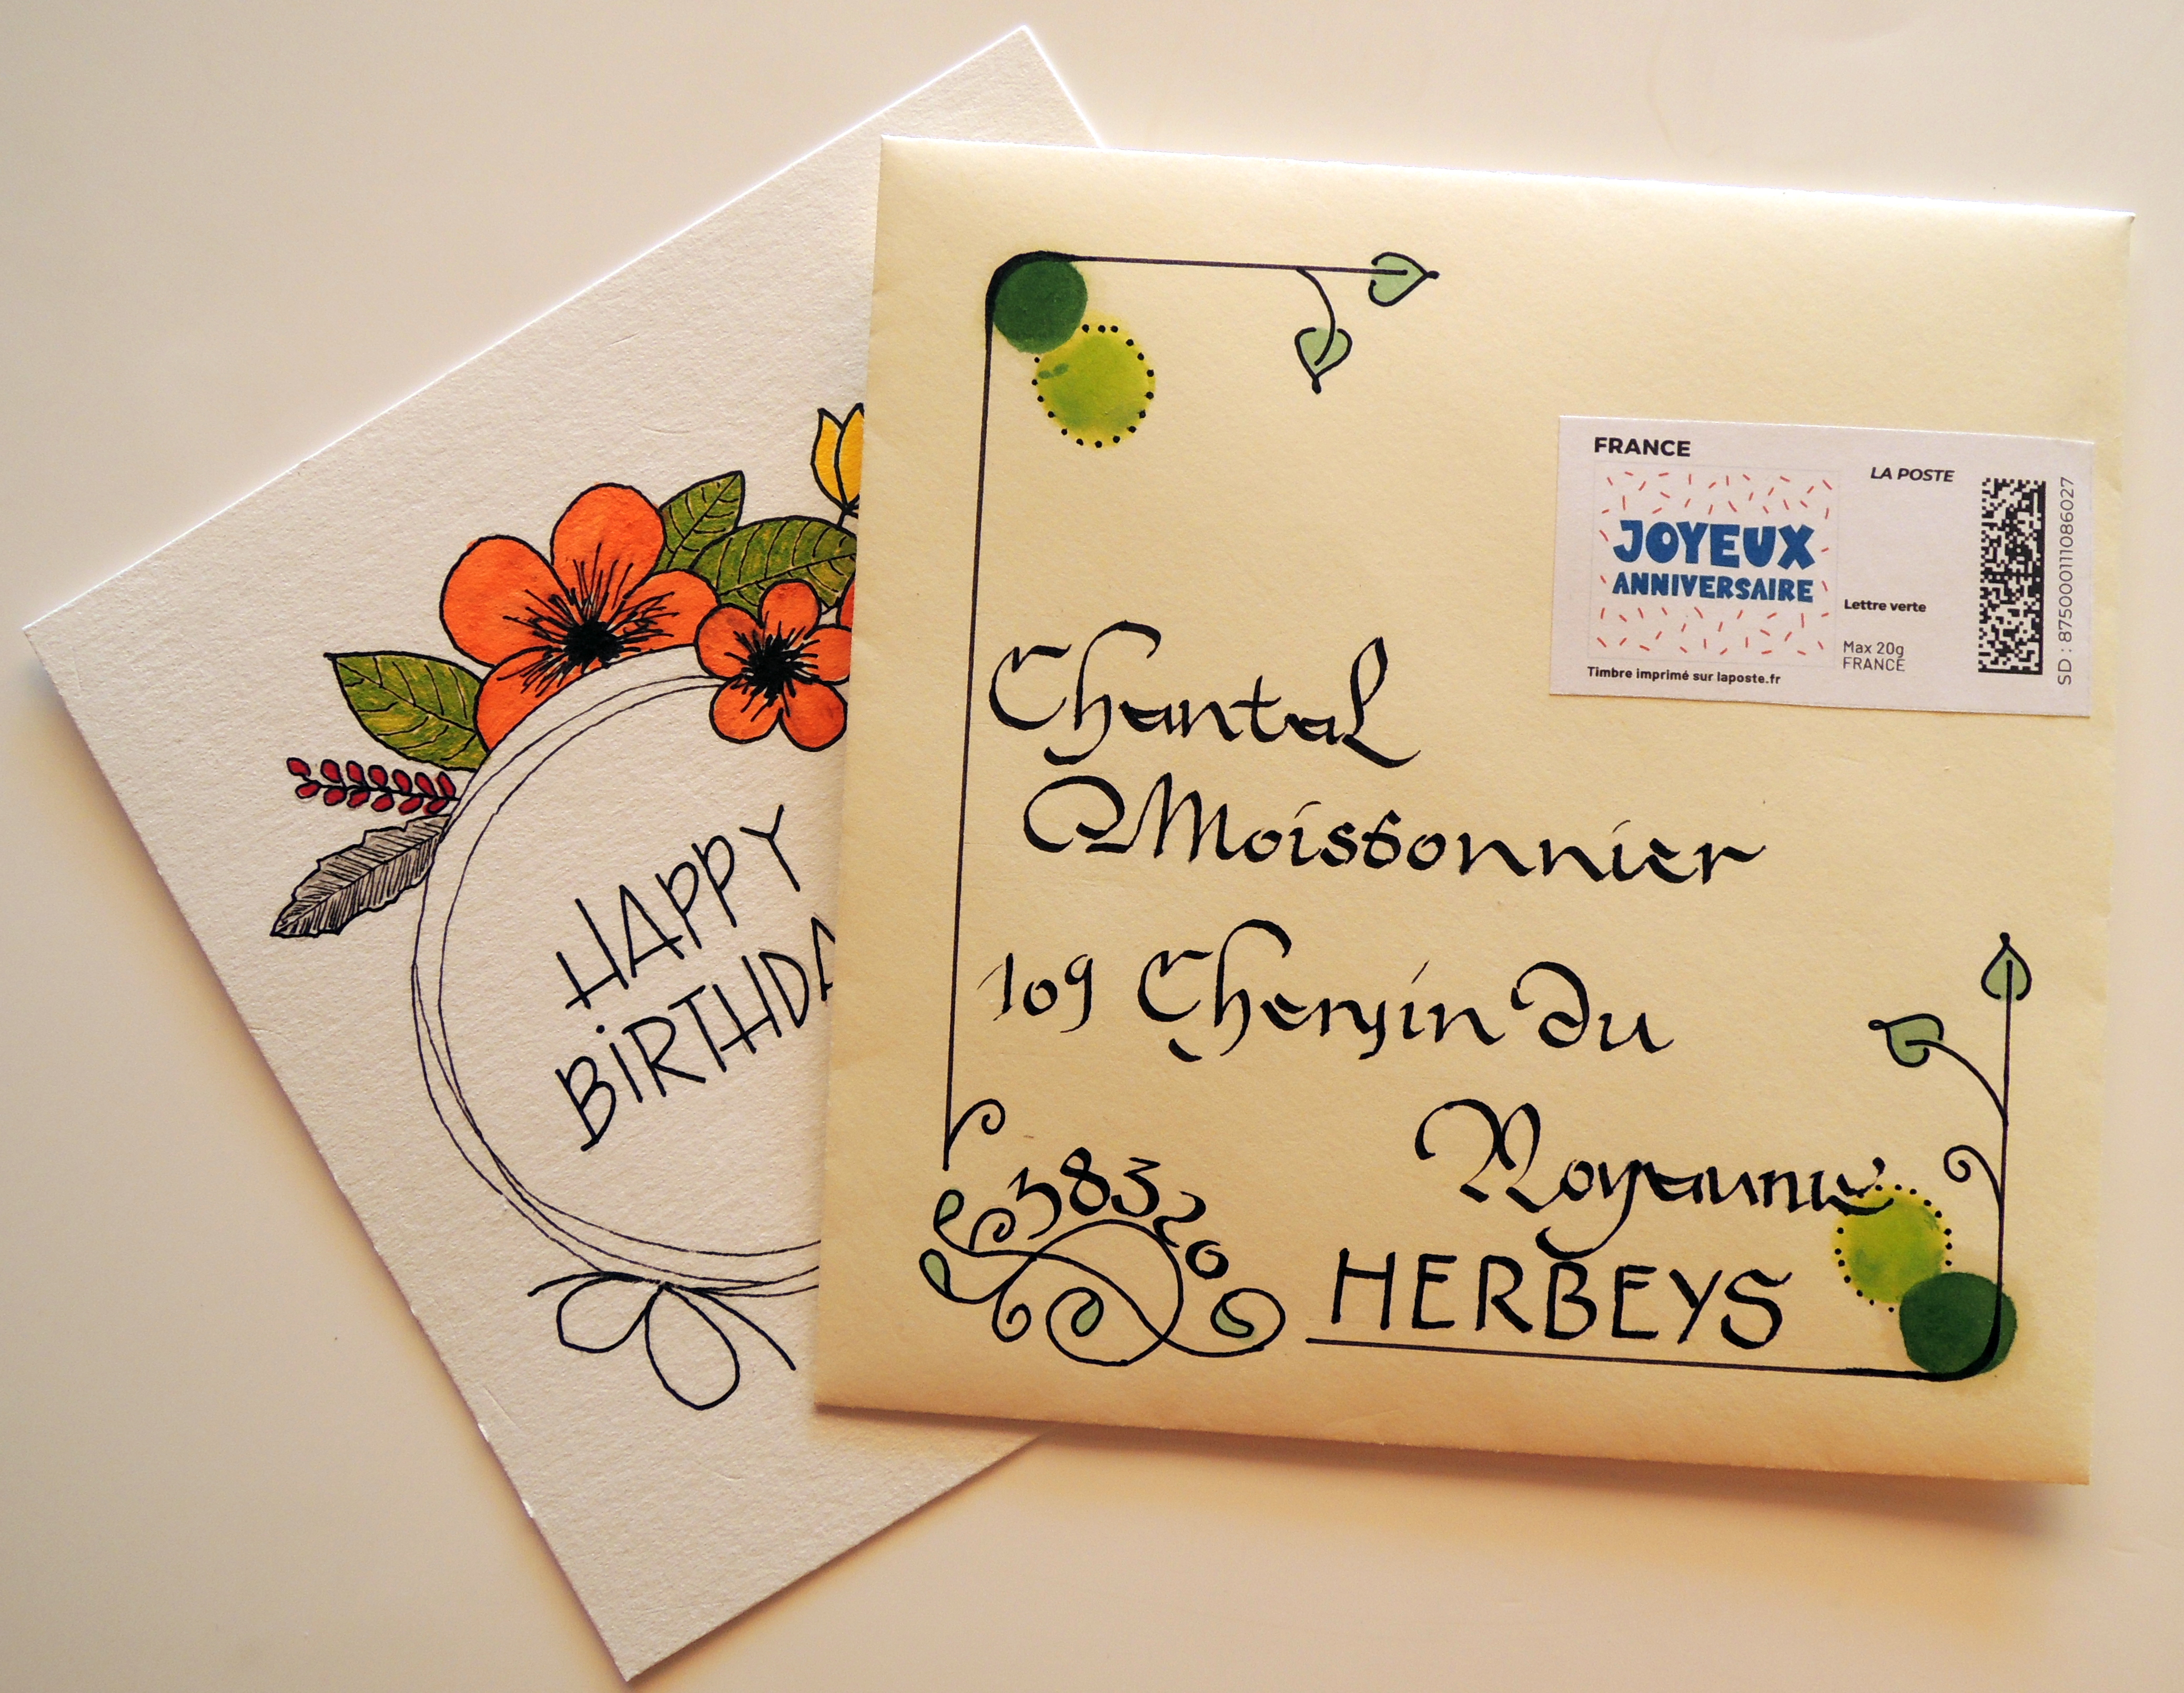 HAPPY
BiRTHDA
FRANCE
LA POSTE
JOYEUX
ANNIVERSAIRE
Lettre verte
Max 20g
FRANCE
Timbre imprimé sur laposte.fr
SD : 87500011108602​7
Chantal
Moissonnier
109 Chemin Du
Royaume
38320
HERBEYS